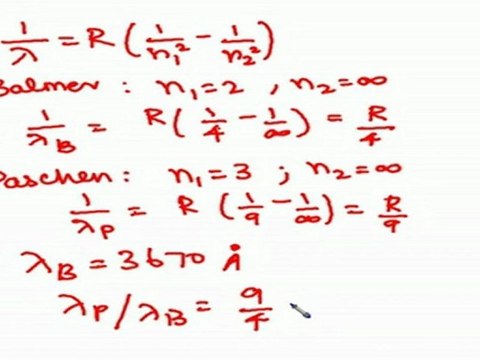 1/λ = R ( 1/n₁² - 1/n₂² )
Balmer : n₁ = 2 , n₂ = ∞
1/λB = R ( 1/4 - 1/∞ ) = R/4
Paschen : n₁ = 3 ; n₂ = ∞
1/λP = R ( 1/9 - 1/∞ ) = R/9
λB = 3670 Å
λP / λB = 9/4